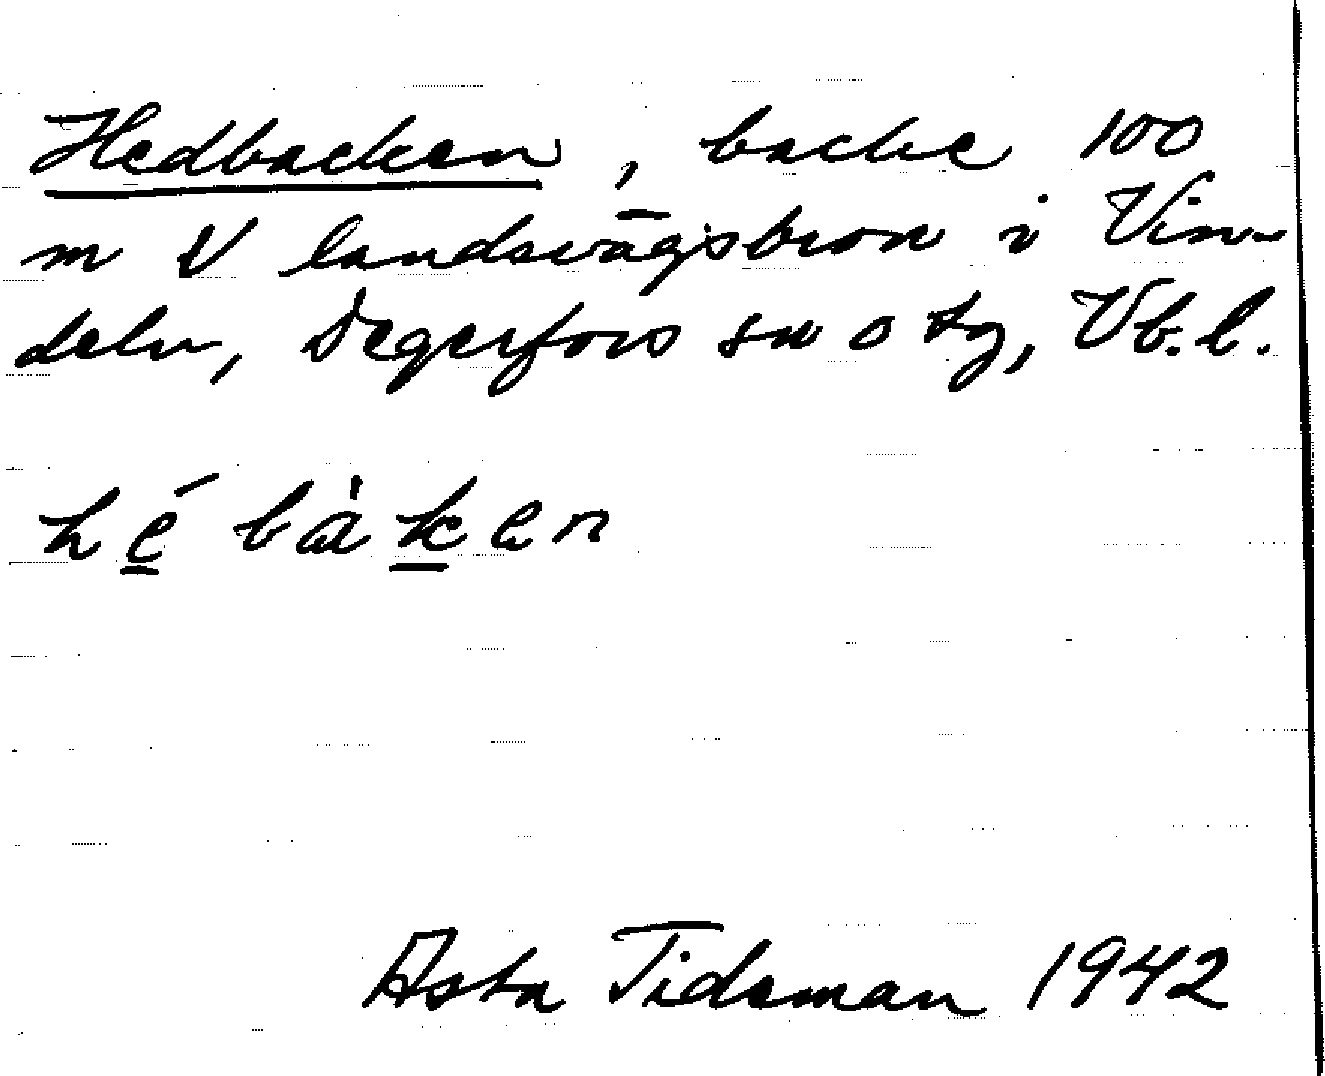 Hedbacken, backe 100
m V landsvägsbron i Vin-
deln, Degerfors sn o tg, Vb.l.
hé bàken
Asta Tideman 1942